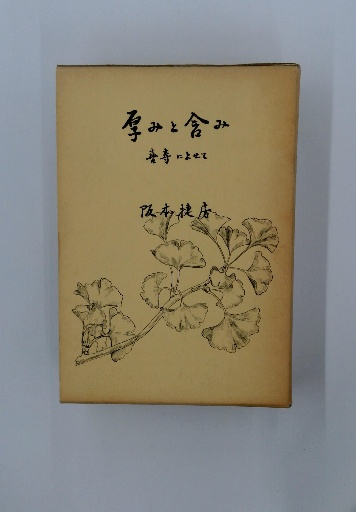 厚みと含み
喜寿によせて
阪本捷房